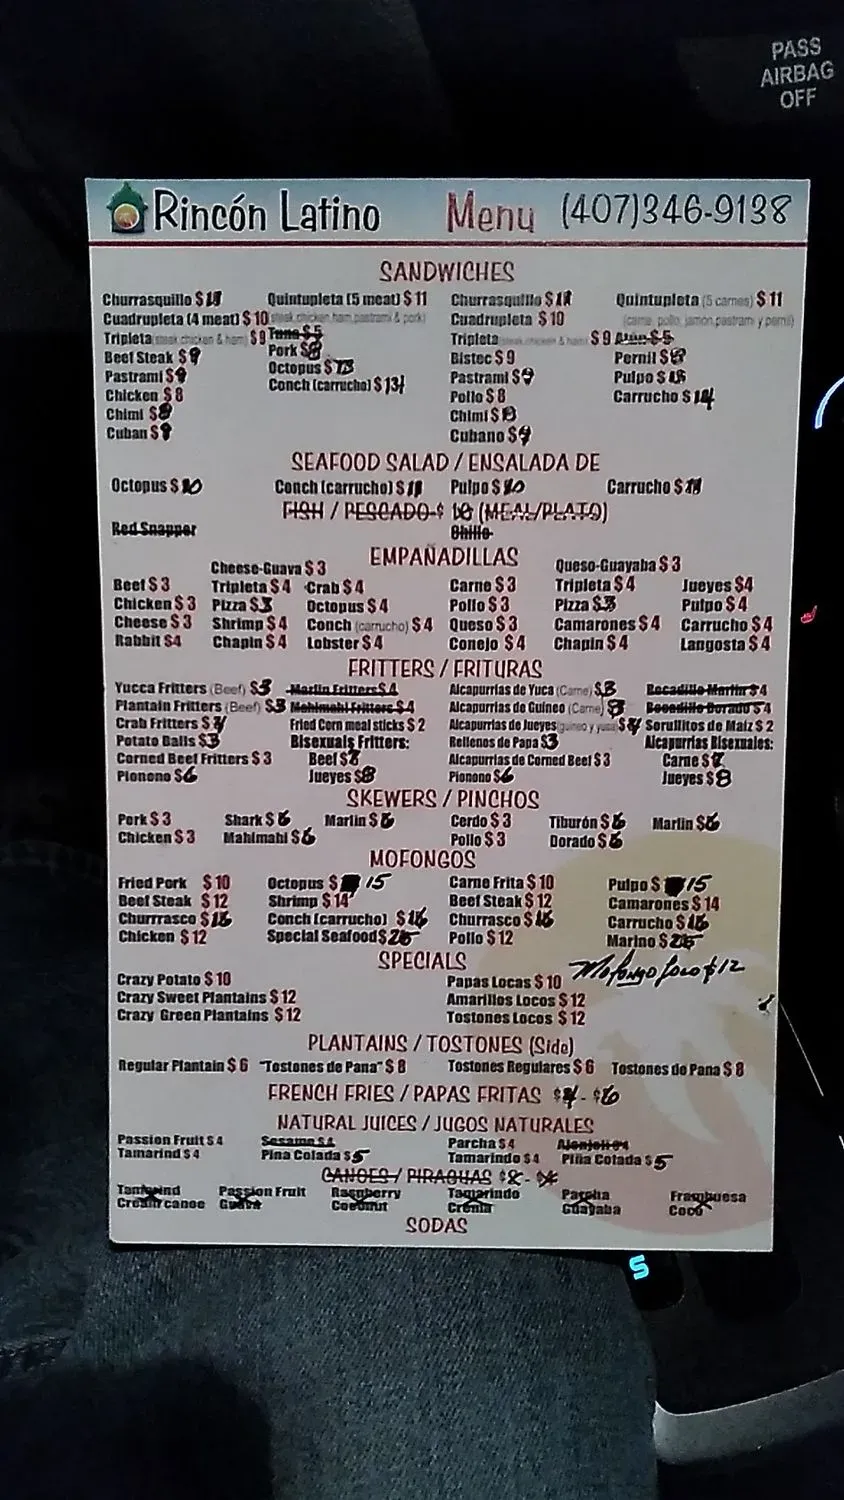 PASS
AIRBAG
OFF
Rincón Latino Menu (407)346-9138
SANDWICHES
Churrasquillo $ Quintupleta (5 meat) $ 11 Churrasquillo $ Quintupleta (5 carnes) $ 11
Cuadrupleta (4 meat) $ 10 (steak,chicken,ham,pastrami & pork) Cuadrupleta $ 10 (carne, pollo, jamon,pastrami y pernil)
Tripleta (steak chicken & ham) $ 9 Tuna $ 5 Tripleta (steak chicken & ham) $ 9 Atún $ 5
Beef Steak $ 9 Pork $ 8 Bistec $ 9 Pernil $ 8
Pastrami $ 9 Octopus $ 13 Pastrami $ 9 Pulpo $
Chicken $ 8 Conch (carrucho) $ 13 Pollo $ 8 Carrucho $ 14
Chimi $ 8 Chimi $ 8
Cuban $ 9 Cubano $ 9
SEAFOOD SALAD / ENSALADA DE
Octopus $ 10 Conch (carrucho) $ 11 Pulpo $ 10 Carrucho $ 11
FISH / PESCADO $ 10 (MEAL/PLATO)
Red Snapper Chillo
EMPAÑADILLAS
Cheese-Guava $ 3 Queso-Guayaba $ 3
Beef $ 3 Tripleta $ 4 Crab $ 4 Carne $ 3 Tripleta $ 4 Jueyes $4
Chicken $ 3 Pizza $ 3 Octopus $ 4 Pollo $ 3 Pizza $ 3 Pulpo $ 4
Cheese $ 3 Shrimp $ 4 Conch (carrucho) $ 4 Queso $ 3 Camarones $ 4 Carrucho $ 4
Rabbit $4 Chapin $ 4 Lobster $ 4 Conejo $ 4 Chapin $ 4 Langosta $ 4
FRITTERS / FRITURAS
Yucca Fritters (Beef) $3 Marlin Fritters $ 4 Alcapurrias de Yuca (Carne) $3 Bocadillo Marlin $ 4
Plantain Fritters (Beef) $3 Mahimahi Fritters $ 4 Alcapurrias de Guineo (Carne) $3 Bocadillo Dorado $ 4
Crab Fritters $ Fried Corn meal sticks $ 2 Alcapurrias de Jueyes (guineo y yuca) $ Sorullitos de Maíz $ 2
Potato Balls $3 Bisexuals Fritters: Rellenos de Papa $3 Alcapurrias Bisexuales:
Corned Beef Fritters $ 3 Beef $7 Alcapurrias de Corned Beef $ 3 Carne $7
Pionono $6 Jueyes $8 Pionono $6 Jueyes $8
SKEWERS / PINCHOS
Pork $ 3 Shark $ 6 Marlin $ 6 Cerdo $ 3 Tiburón $ 6 Marlin $6
Chicken $ 3 Mahimahi $ 6 Pollo $ 3 Dorado $ 6
MOFONGOS
Fried Pork $ 10 Octopus $ 15 Carne Frita $ 10 Pulpo $ 15
Beef Steak $ 12 Shrimp $ 14 Beef Steak $ 12 Camarones $ 14
Churrrasco $ 16 Conch (carrucho) $ 16 Churrasco $ 16 Carrucho $ 16
Chicken $ 12 Special Seafood $ Pollo $ 12 Marino $
SPECIALS Mofongo Loco $12
Crazy Potato $ 10 Papas Locas $ 10
Crazy Sweet Plantains $ 12 Amarillos Locos $ 12
Crazy Green Plantains $ 12 Tostones Locos $ 12
PLANTAINS / TOSTONES (Side)
Regular Plantain $ 6 "Tostones de Pana" $ 8 Tostones Regulares $ 6 Tostones de Pana $ 8
FRENCH FRIES / PAPAS FRITAS $4 - $6
NATURAL JUICES / JUGOS NATURALES
Passion Fruit $ 4 Sesame $ 4 Parcha $ 4 Ajonjoli $ 4
Tamarind $ 4 Pina Colada $ 5 Tamarindo $ 4 Piña Colada $ 5
CANOES / PIRAGUAS
Tamarind Passion Fruit Raspberry Tamarindo Parcha Frambuesa
Cream canoe Guava Coconut Crema Guayaba Coco
SODAS
S